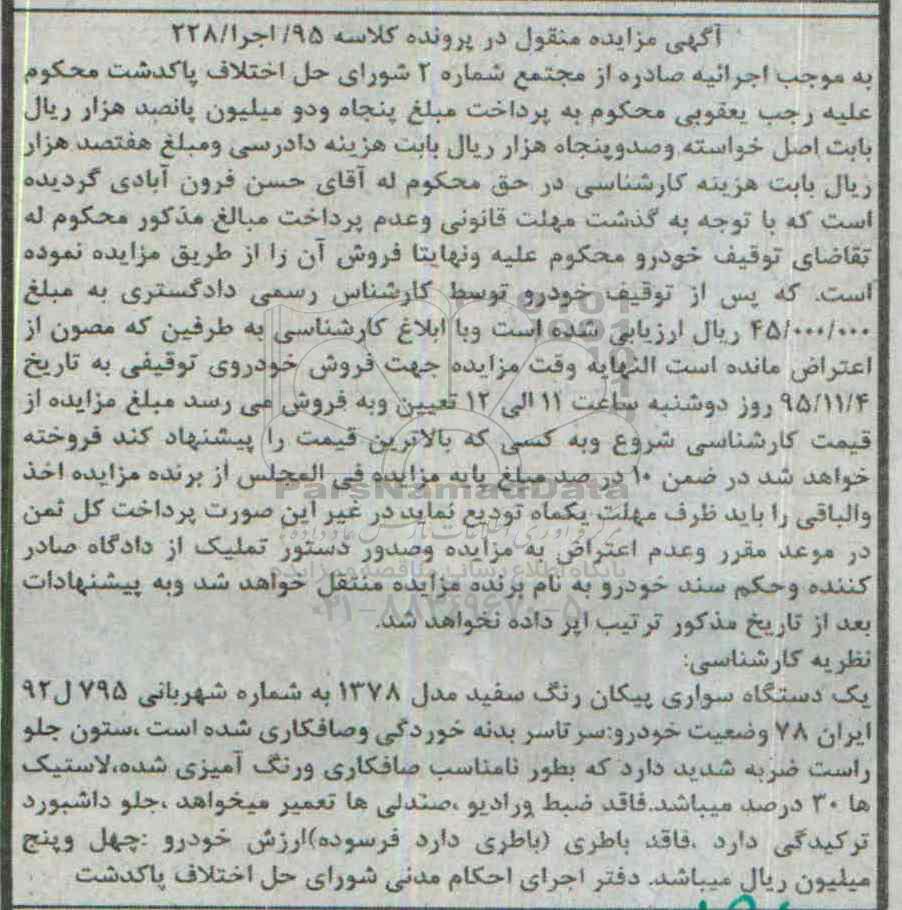 آگهی مزایده منقول در پرونده کلاسه ۹۵/ اجرا/۲۲۸
به موجب اجرائیه صادره از مجتمع شماره ۲ شورای حل اختلاف پاکدشت محکوم
علیه رجب یعقوبی محکوم به پرداخت مبلغ پنجاه ودو میلیون پانصد هزار ریال
بابت اصل خواسته وصدوپنجاه هزار ریال بابت هزینه دادرسی ومبلغ هفتصد هزار
ریال بابت هزینه کارشناسی در حق محکوم له آقای حسن فرون آبادی گردیده
است که با توجه به گذشت مهلت قانونی وعدم پرداخت مبالغ مذکور محکوم له
تقاضای توقیف خودرو محکوم علیه ونهایتا فروش آن را از طریق مزایده نموده
است. که پس از توقیف خودرو توسط کارشناس رسمی دادگستری به مبلغ
۴۵/۰۰۰/۰۰۰ ریال ارزیابی شده است وبا ابلاغ کارشناسی به طرفین که مصون از
اعتراض مانده است النهایه وقت مزایده جهت فروش خودروی توقیفی به تاریخ
۹۵/۱۱/۴ روز دوشنبه ساعت ۱۱ الی ۱۲ تعیین وبه فروش می رسد مبلغ مزایده از
قیمت کارشناسی شروع وبه کسی که بالاترین قیمت را پیشنهاد کند فروخته
خواهد شد در ضمن ۱۰ در صد مبلغ پایه مزایده فی المجلس از برنده مزایده اخذ
والباقی را باید ظرف مهلت یکماه تودیع نماید در غیر این صورت پرداخت کل ثمن
در موعد مقرر وعدم اعتراض به مزایده وصدور دستور تملیک از دادگاه صادر
کننده وحکم سند خودرو به نام برنده مزایده منتقل خواهد شد وبه پیشنهادات
بعد از تاریخ مذکور ترتیب اپر داده نخواهد شد.
نظریه کارشناسی:
یک دستگاه سواری پیکان رنگ سفید مدل ۱۳۷۸ به شماره شهربانی ۷۹۵ ل ۹۲
ایران ۷۸ وضعیت خودرو:سر تاسر بدنه خوردگی وصافکاری شده است ،ستون جلو
راست ضربه شدید دارد که بطور نامناسب صافکاری ورنگ آمیزی شده،لاستیک
ها ۳۰ درصد میباشد.فاقد ضبط ورادیو ،صندلی ها تعمیر میخواهد ،جلو داشبورد
ترکیدگی دارد ،فاقد باطری (باطری دارد فرسوده)ارزش خودرو :چهل وپنج
میلیون ریال میباشد. دفتر اجرای احکام مدنی شورای حل اختلاف پاکدشت
ParsNamadData
پایگاه اطلاع رسانی مناقصه و مزایده
۰۲۱-۸۸۳۴۹۶۷۰-۵